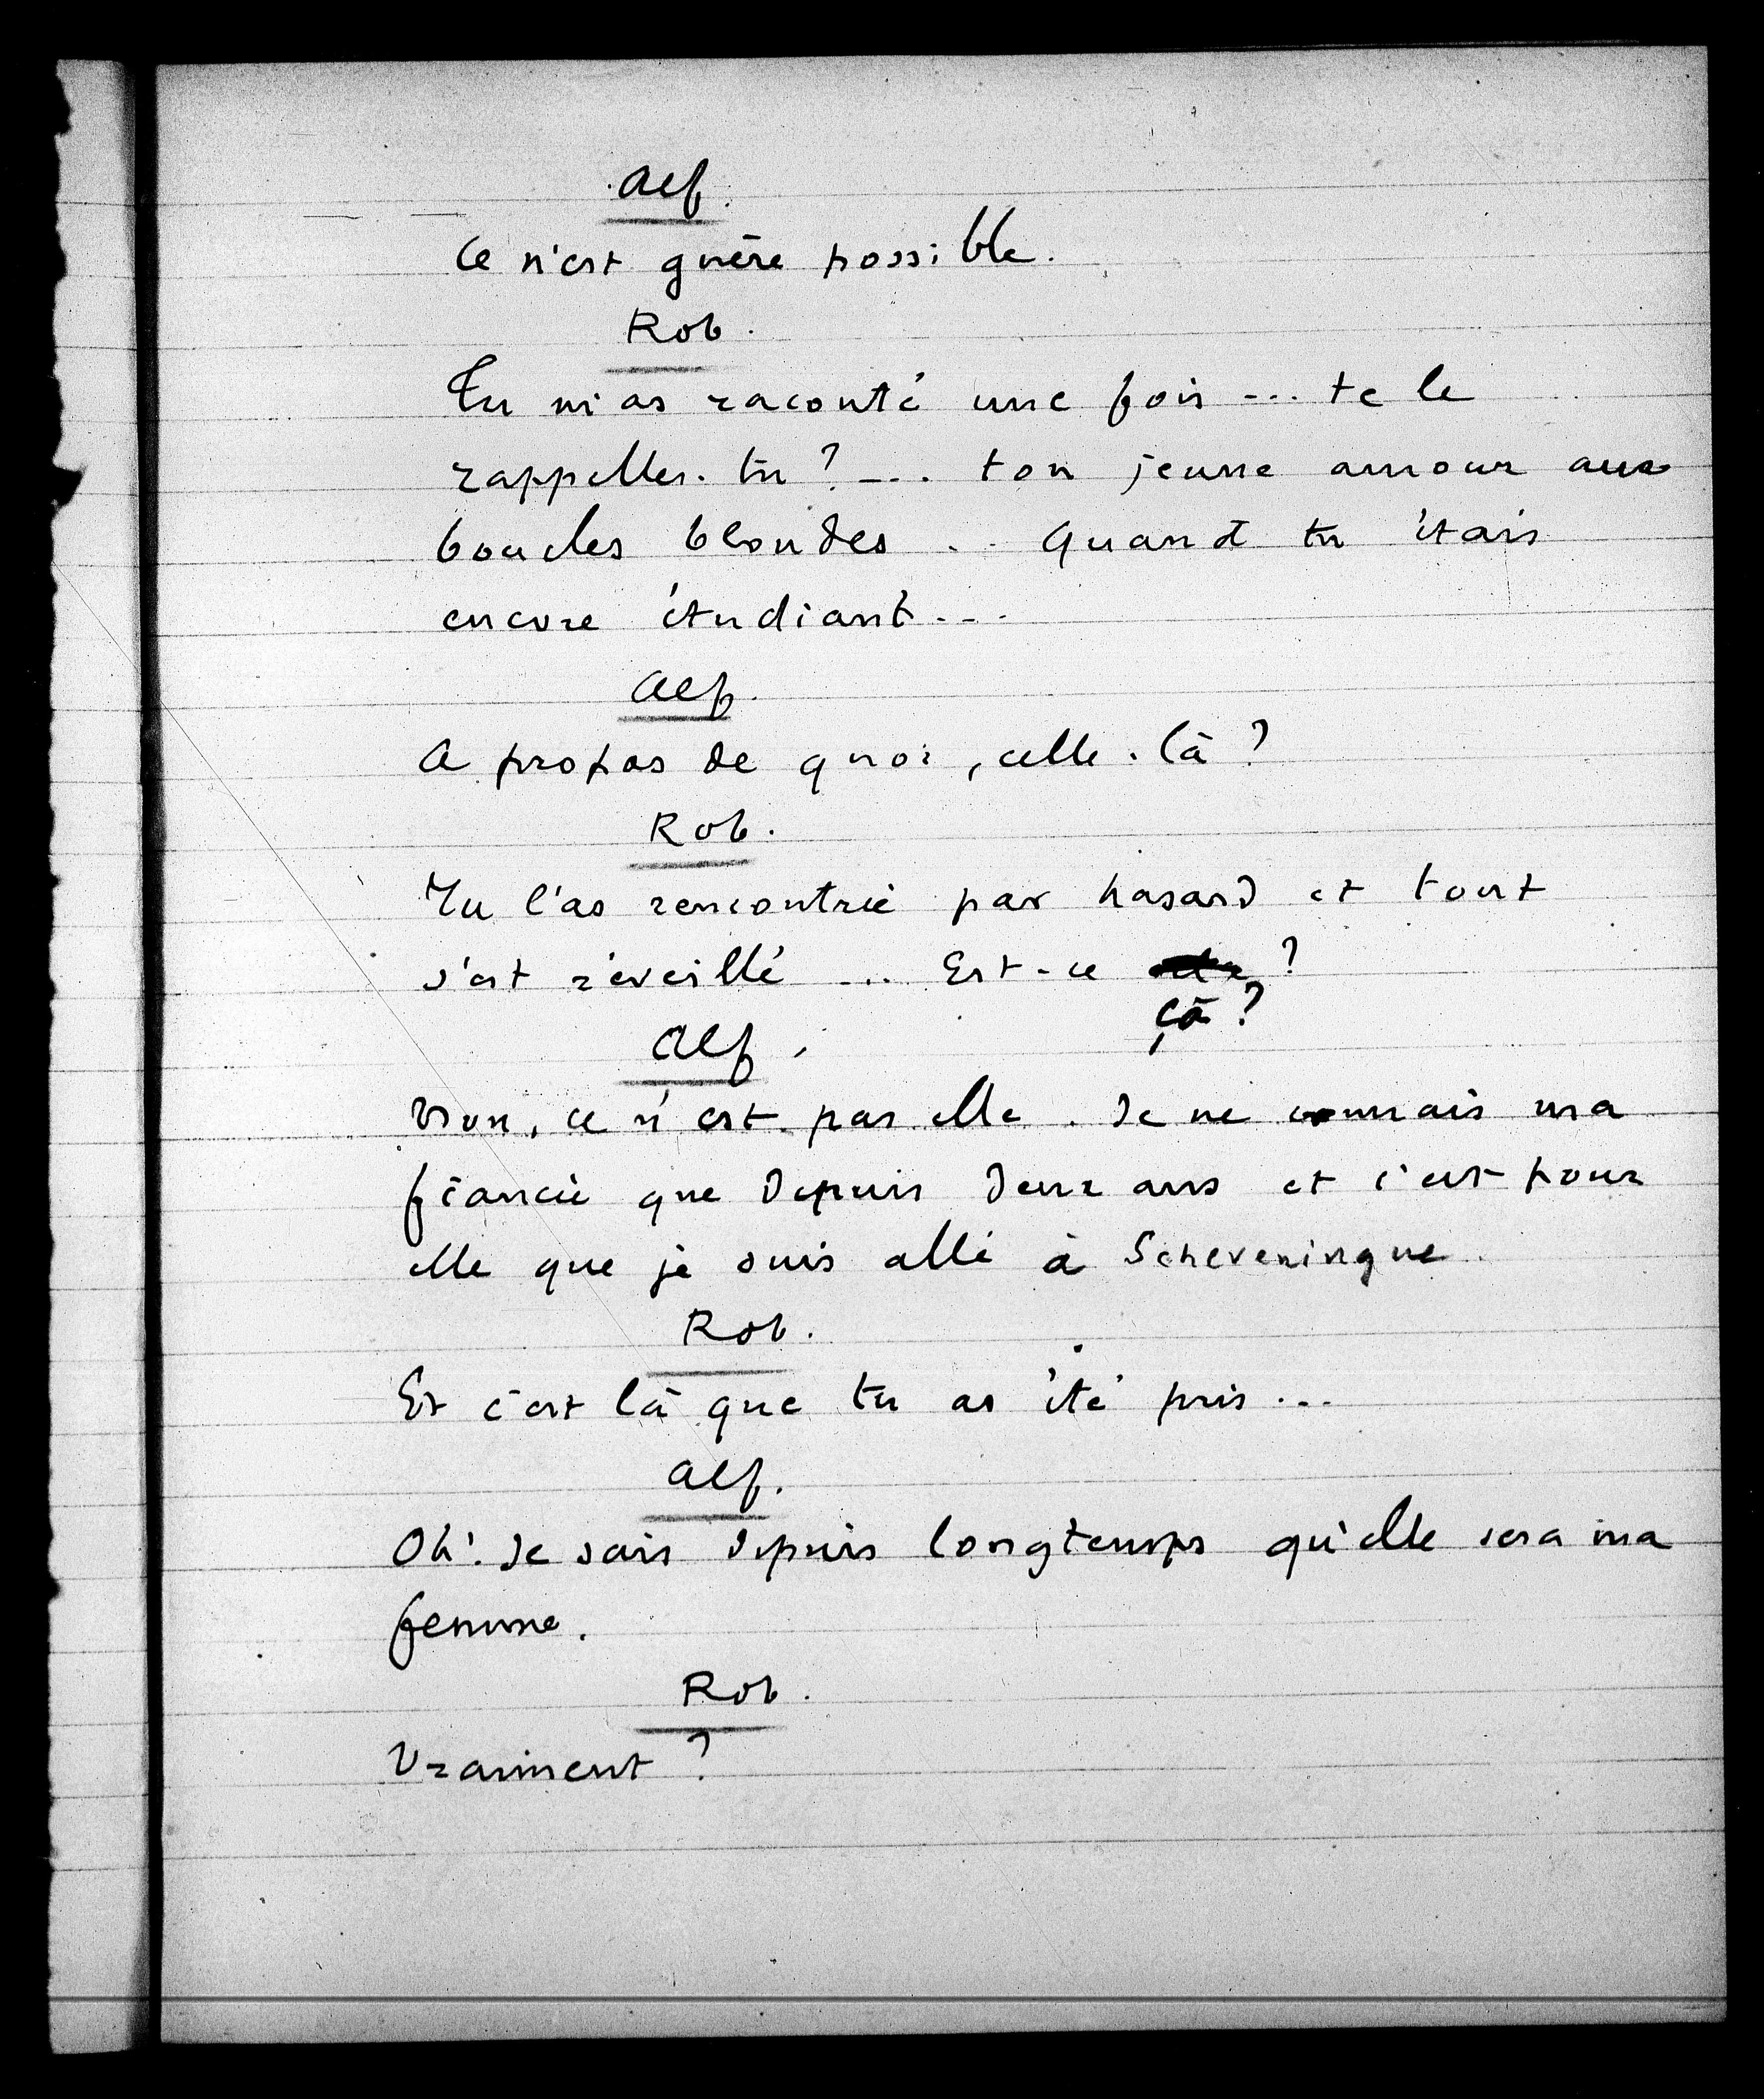 Alf.
Ce n'est guère possible.
Rob.
Tu m'as raconté une fois ... te le
rappelles-tu ? ... ton jeune amour aux
boucles blondes .. quand tu étais
encore étudiant ...
Alf.
A propos de quoi, celle-là ?
Rob.
Tu l'as rencontrée par hasard et tout
s'est réveillé ... Est-ce ?
çà ?
Alf.
Non, ce n'est pas elle. Je ne connais ma
fiancée que depuis deux ans et c'est pour
elle que je suis allé à Scheveningue.
Rob.
Et c'est là que tu as été pris ...
Alf.
Oh! Je sais depuis longtemps qu'elle sera ma
femme.
Rob.
Vraiment ?